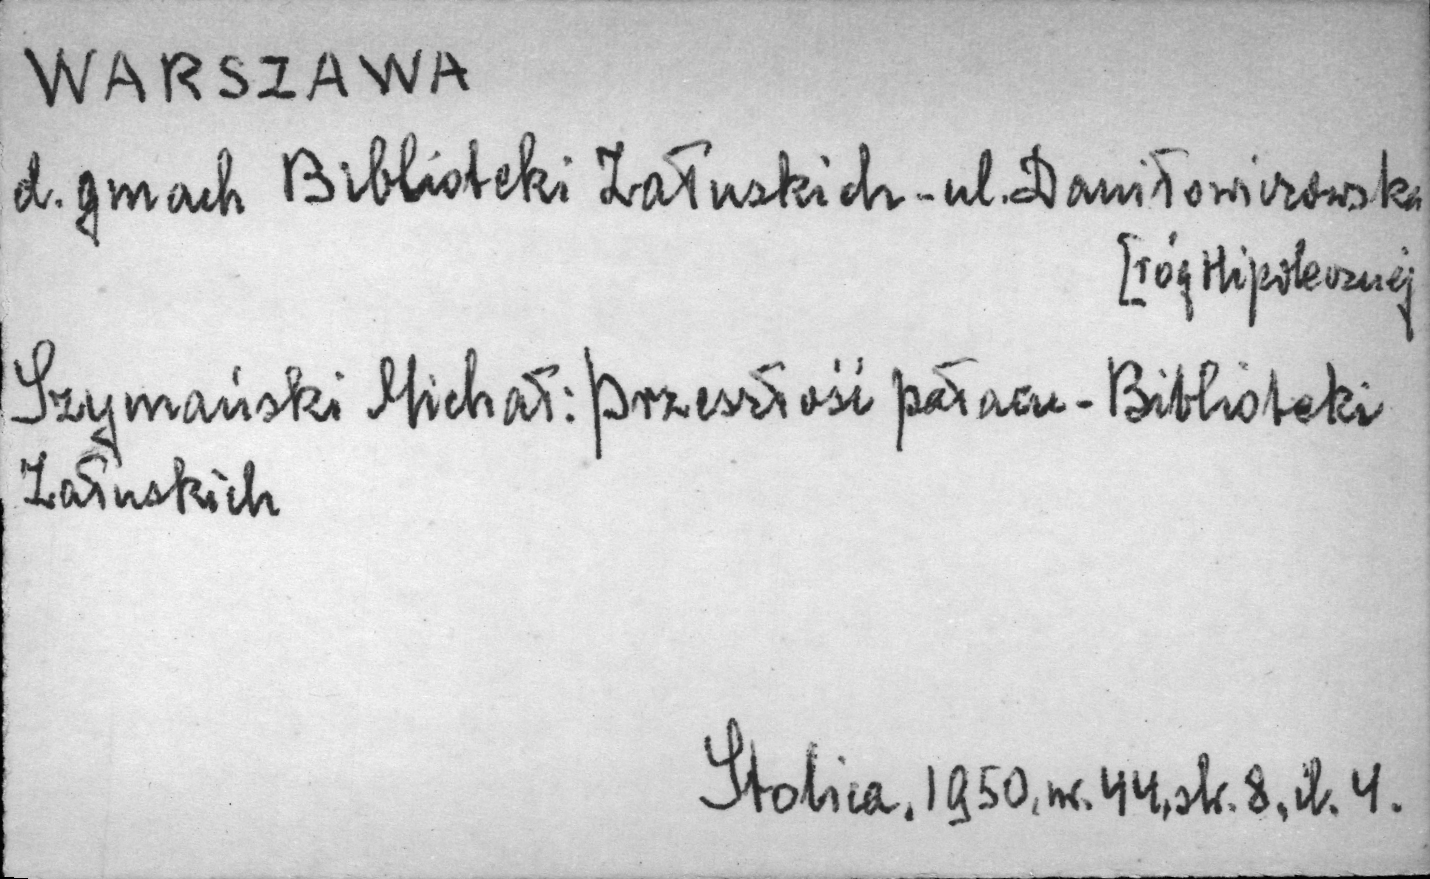 WARSZAWA
d. gmach Biblioteki Załuskich - ul. Daniłowiczowska
[róg Hipotecznej
Szymański Michał: Przeszłość pałacu - Biblioteki
Załuskich
Stolica, 1950, nr. 44, str. 8, il. 4.